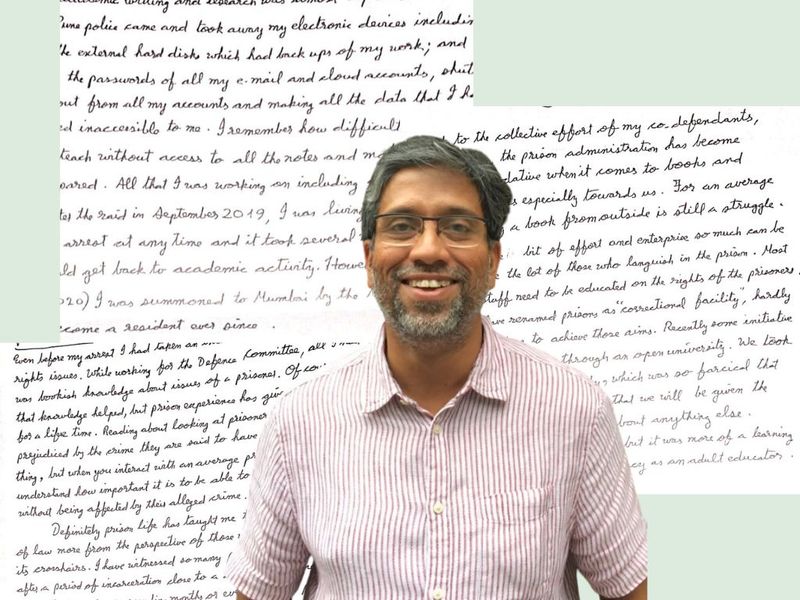 academic writing and research was
Pune police came and took away my electronic devices includin
the external hard disks which had back ups of my work; and
the passwords of all my e-mail and cloud accounts, shut
out from all my accounts and making all the data that I h
ed inaccessible to me. I remember how difficult
teach without access to all the notes and m
pared. All that I was working on including
the raid in September 2019, I was living
arrest at any time and it took several
ld get back to academic activity. Howe
020) I was summoned to Mumbai by the
ecome a resident ever since.
Even before my arrest I had taken an
rights issues. While working for the Defence Committee, all I
was bookish knowledge about issues of a prisoner. Of co
that knowledge helped, but prison experience has giv
for a life time. Reading about looking at prisoner
prejudiced by the crime they are said to have
thing, but when you interact with an average pr
understand how important it is to be able to
without being affected by their alleged crime.
Definitely prison life has taught me
of law more from the perspective of those
its crosshairs. I have witnessed so many
after a period of incarceration close to a
months or ev
to the collective effort of my co-defendants,
the prison administration has become
dative when it comes to books and
s especially towards us. For an average
a book from outside is still a struggle.
bit of effort and enterprise so much can be
the lot of those who languish in the prison. Most
staff need to be educated on the rights of the prisoners.
ve renamed prisons as "correctional facility", hardly
to achieve those aims. Recently some initiative
through an open university. We took
, which was so farcical that
that we will be given the
about anything else.
but it was more of a learning
cy as an adult educator.